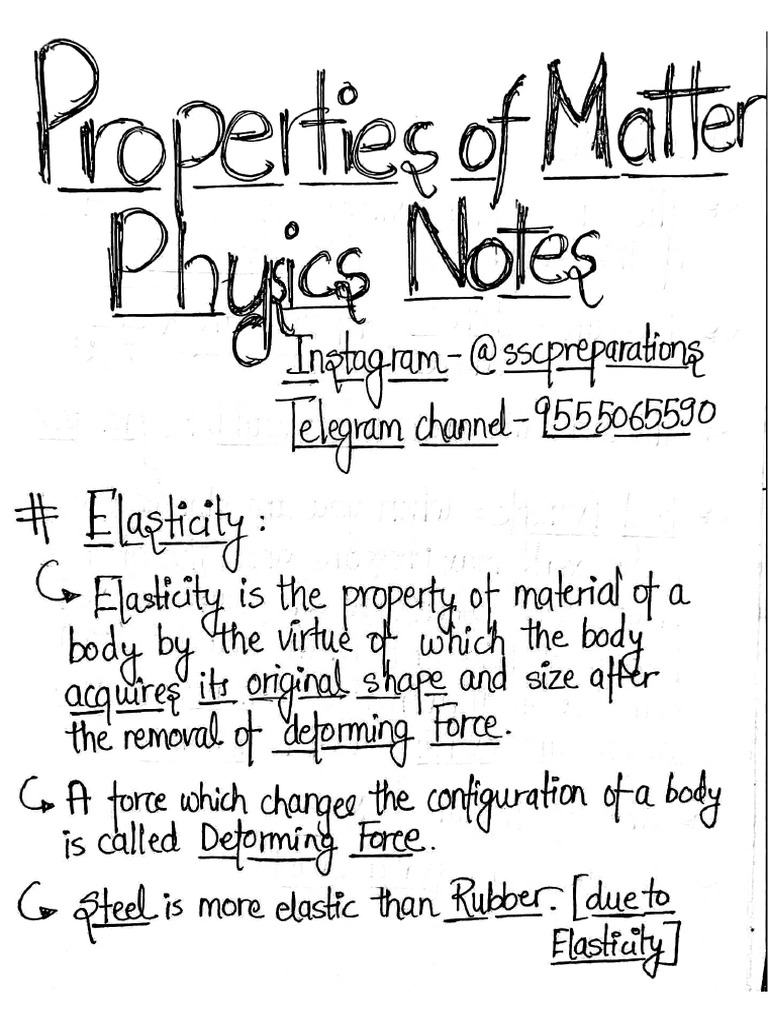 Properties of Matter
Physics Notes
Instagram - @sscpreparations
Telegram channel - 9555065590
# Elasticity :
Elasticity is the property of material of a
body by the virtue of which the body
acquires its original shape and size after
the removal of deforming Force.
A force which change the configuration of a body
is called Deforming Force.
Steel is more elastic than Rubber. [due to
Elasticity]